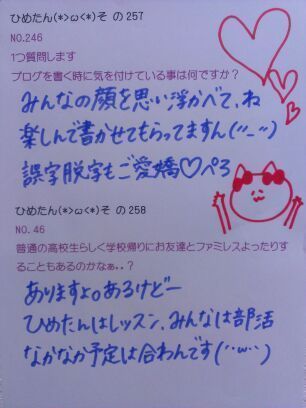 ひめたん(*>ω<*)そ の257
NO.246
1つ質問します
ブログを書く時に気を付けている事は何ですか？
みんなの顔を思い浮かべて、ね
楽しんで書かせてもらってますん(''-'')
誤字脱字もご愛嬌♡ぺろ
ひめたん(*>ω<*)そ の258
NO.46
普通の高校生らしく学校帰りにお友達とファミレスよったりす
ることもあるのかなぁ､､？
ありますよ。あるけどー
ひめたんはレッスン、みんなは部活
なかなか予定は合わんです(''･w･'')